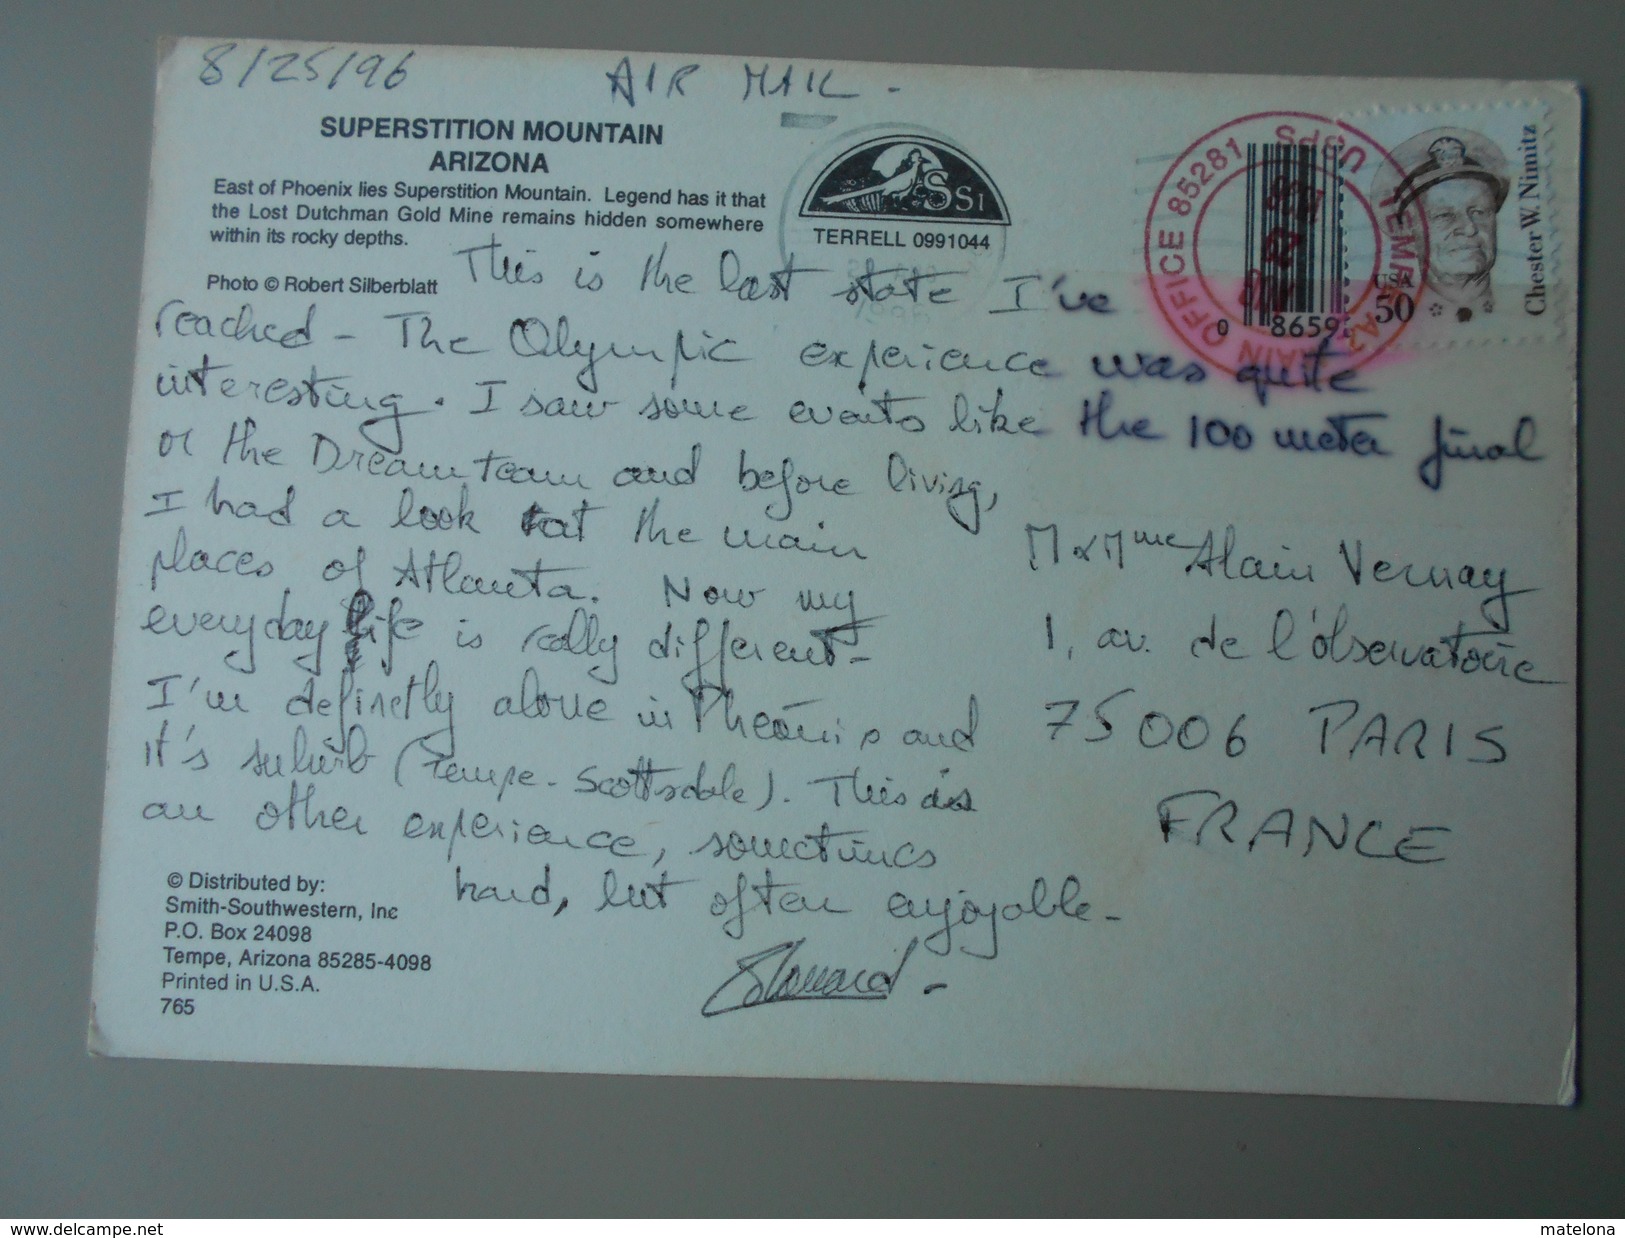 8/25/96
AIR MAIL -
SUPERSTITION MOUNTAIN
ARIZONA
East of Phoenix lies Superstition Mountain. Legend has it that
the Lost Dutchman Gold Mine remains hidden somewhere
within its rocky depths.
Photo © Robert Silberblatt
SSI
TERRELL 0991044
OFFICE 85281
USPS
MAIN
0 8659
USA
50
Chester W. Nimitz
This is the last state I've
reached - The Olympic experience was quite
interesting. I saw some events like the 100 meter final
or the Dream team and before living,
I had a look at the main
places of Atlanta. Now my
everyday life is really different -
I'm definetly alone in Pheonix and
it's suburb (Tempe - Scottsdale). This is
an other experience, sometimes
hard, but often enjoyable -
M & Mme Alain Vernay
1, av. de l'observatoire
75006 PARIS
FRANCE
© Distributed by:
Smith-Southwestern, Inc
P.O. Box 24098
Tempe, Arizona 85285-4098
Printed in U.S.A.
765
www.delcampe.net
matelona